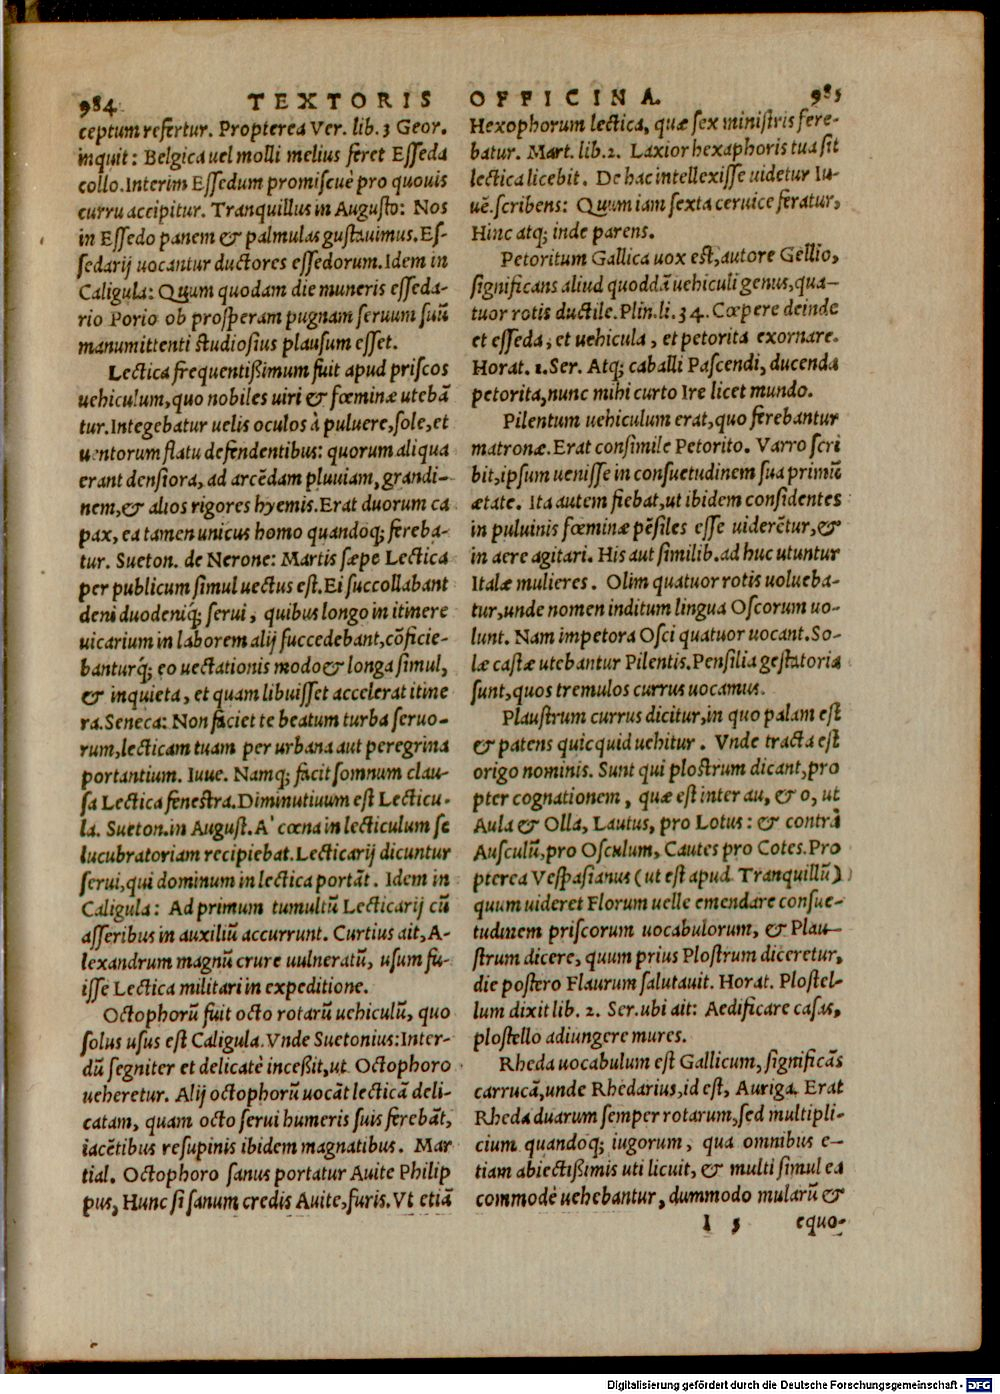 984 TEXTORIS OFFICINA. 985
ceptum refertur. Propterea Ver. lib. 3 Geor.
inquit: Belgica uel molli melius feret Esseda
collo. Interim Essedum promiscuè pro quouis
curru accipitur. Tranquillus in Augusto: Nos
in Essedo panem & palmulas gustauimus. Es-
sedarij uocantur ductores essedorum. Idem in
Caligula: Quum quodam die muneris esseda-
rio Porio ob prosperam pugnam seruum suũ
manumittenti studiosius plausum esset.
Lectica frequentißimum fuit apud priscos
uehiculum, quo nobiles uiri & fœminæ utebã
tur. Integebatur uelis oculos à puluere, sole, et
uentorum flatu defendentibus: quorum aliqua
erant densiora, ad arcẽdam pluuiam, grandi-
nem, & alios rigores hyemis. Erat duorum ca
pax, ea tamen unicus homo quandoq; fereba-
tur. Sueton. de Nerone: Martis sæpe Lectica
per publicum simul uectus est. Ei succollabant
deni duodeniq́; serui, quibus longo in itinere
uicarium in laborem alij succedebant, cõficie-
banturq́; eo uectationis modo & longa simul,
& inquieta, et quam libuisset accelerat itine
ra. Seneca: Non faciet te beatum turba seruo-
rum, lecticam tuam per urbana aut peregrina
portantium. Iuue. Namq; facit somnum clau-
sa Lectica fenestra. Diminutiuum est Lecticu-
la. Sueton. in August. A' cœna in lecticulum se
lucubratoriam recipiebat. Lecticarij dicuntur
serui, qui dominum in lectica portãt. Idem in
Caligula: Ad primum tumultũ Lecticarij cũ
asseribus in auxiliũ accurrunt. Curtius ait, A-
lexandrum magnũ crure uulneratũ, usum fu-
isse Lectica militari in expeditione.
Octophorũ fuit octo rotarũ uehiculũ, quo
solus usus est Caligula. Vnde Suetonius: Inter-
dũ segniter et delicatè inceßit, ut Octophoro
ueheretur. Alij octophorũ uocãt lecticã deli-
catam, quam octo serui humeris suis ferebãt,
iacẽtibus resupinis ibidem magnatibus. Mar
tial. Octophoro sanus portatur Auite Philip
pus, Hunc si sanum credis Auite, furis. Vt etiã
Hexophorum lectica, quæ sex ministris fere-
batur. Mart. lib. 2. Laxior hexaphoris tua sit
lectica licebit. De hac intellexisse uidetur Iu-
uẽ. scribens: Quum iam sexta ceruice feratur,
Hinc atq; inde parens.
Petoritum Gallica uox est, autore Gellio,
significans aliud quoddã uehiculi genus, qua-
tuor rotis ductile. Plin. li. 34. Cœpere deinde
et esseda, et uehicula, et petorita exornare.
Horat. 1. Ser. Atq; caballi Pascendi, ducenda
petorita, nunc mihi curto Ire licet mundo.
Pilentum uehiculum erat, quo ferebantur
matronæ. Erat consimile Petorito. Varro scri
bit, ipsum uenisse in consuetudinem sua primũ
ætate. Ita autem fiebat, ut ibidem considentes
in puluinis fœminæ pẽsiles esse uiderẽtur, &
in aere agitari. His aut similib. ad huc utuntur
Italæ mulieres. Olim quatuor rotis uolueba-
tur, unde nomen inditum lingua Oscorum uo-
lunt. Nam impetora Osci quatuor uocant. So-
læ castæ utebantur Pilentis. Pensilia gestatoria
sunt, quos tremulos currus uocamus.
Plaustrum currus dicitur, in quo palam est
& patens quicquid uehitur. Vnde tracta est
origo nominis. Sunt qui plostrum dicant, pro
pter cognationem, quæ est inter au, & o, ut
Aula & Olla, Lautus, pro Lotus: & contrà
Ausculũ, pro Osculum, Cautes pro Cotes. Pro
pterea Vespasianus (ut est apud Tranquillũ)
quum uideret Florum uelle emendare consue-
tudinem priscorum uocabulorum, & Plau-
strum dicere, quum prius Plostrum diceretur,
die postero Flaurum salutauit. Horat. Plostel-
lum dixit lib. 2. Ser. ubi ait: Aedificare casas,
plostello adiungere mures.
Rheda uocabulum est Gallicum, significãs
carrucã, unde Rhedarius, id est, Auriga. Erat
Rheda duarum semper rotarum, sed multipli-
cium quandoq; iugorum, qua omnibus e-
tiam abiectißimis uti licuit, & multi simul ea
commodè uehebantur, dummodo mularũ &
I 5 equo-
Digitalisierung gefördert durch die Deutsche Forschungsgemeinschaft - DFG